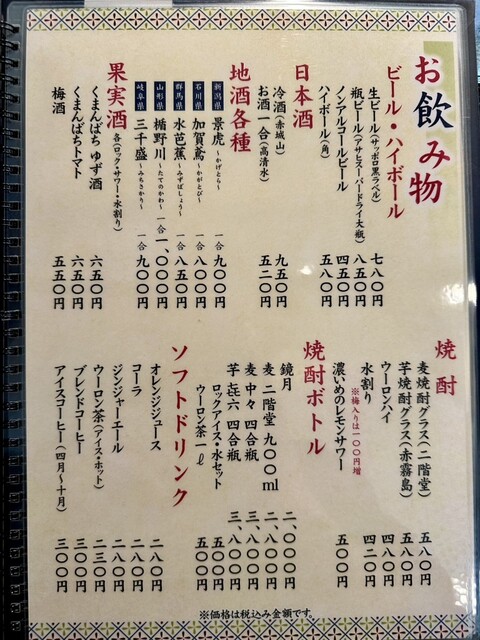 お飲み物
ビール・ハイボール
生ビール(サッポロ黒ラベル) 七八〇円
瓶ビール(アサヒスーパードライ大瓶) 八五〇円
ノンアルコールビール 四五〇円
ハイボール(角) 五八〇円
日本酒
冷酒(赤城山) 九五〇円
お酒一合(高清水) 五二〇円
地酒各種
新潟県 景虎 〜かげとら〜 一合 九〇〇円
石川県 加賀鳶 〜かがとび〜 一合 八〇〇円
群馬県 水芭蕉 〜みずばしょう〜 一合 八五〇円
山形県 楯野川 〜たてのかわ〜 一合 一、〇〇〇円
岐阜県 三千盛 〜みちさかり〜 一合 九〇〇円
果実酒
各(ロック・サワー・水割り)
くまんばち ゆず酒 六五〇円
くまんばちトマト 六五〇円
梅酒 五五〇円
焼酎
麦焼酎グラス(二階堂) 五八〇円
芋焼酎グラス(赤霧島) 五八〇円
ウーロンハイ 四八〇円
水割り 四二〇円
※梅入りは一〇〇円増
濃いめのレモンサワー 五〇〇円
焼酎ボトル
鏡月 二、〇〇〇円
麦 二階堂 九〇〇ml 二、八〇〇円
麦 中々 四合瓶 三、八〇〇円
芋 㐂六 四合瓶 三、八〇〇円
ロックアイス・水セット 五〇〇円
ウーロン茶一ℓ 五〇〇円
ソフトドリンク
オレンジジュース 二八〇円
コーラ 二八〇円
ジンジャーエール 二八〇円
ウーロン茶(アイス・ホット) 二三〇円
ブレンドコーヒー 三〇〇円
アイスコーヒー(四月〜十月) 三〇〇円
※価格は税込み金額です。